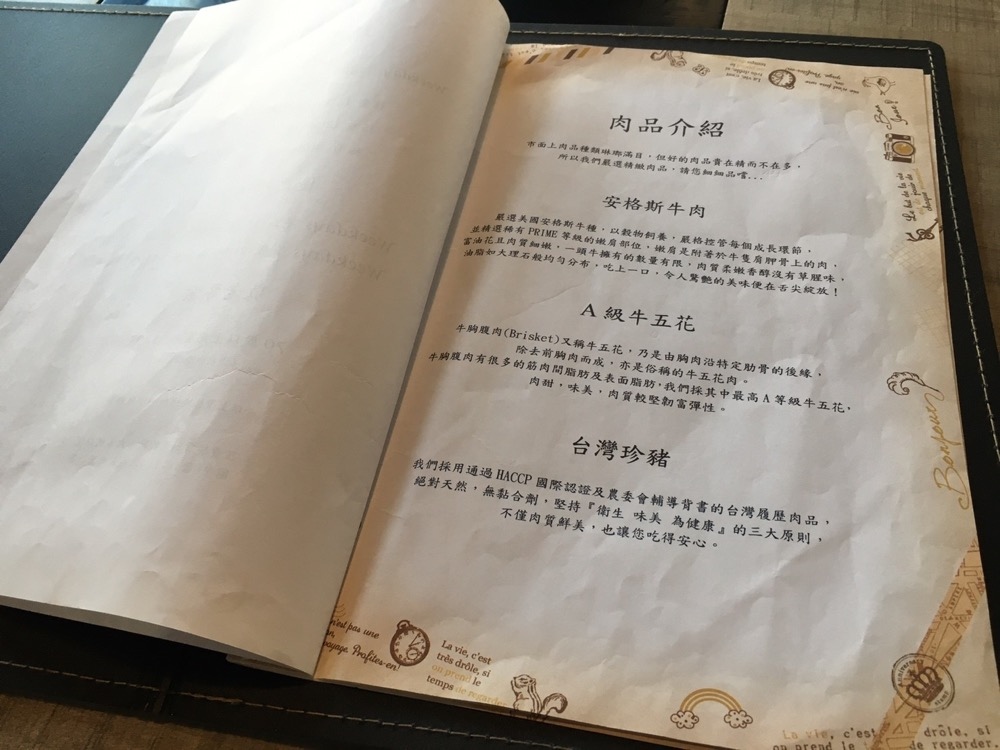 肉品介紹
市面上肉品種類琳瑯滿目，但好的肉品貴在精而不在多，
所以我們嚴選精緻肉品，請您細細品嚐...
安格斯牛肉
嚴選美國安格斯牛種，以穀物飼養，嚴格控管每個成長環節，
並精選稀有PRIME等級的嫩肩部位，嫩肩是附著於牛隻肩胛骨上的肉，
富油花且肉質細嫩，一頭牛擁有的數量有限，肉質柔嫩香醇沒有草腥味，
油脂如大理石般均勻分布，吃上一口，令人驚艷的美味便在舌尖綻放！
A級牛五花
牛胸腹肉(Brisket)又稱牛五花，乃是由胸肉沿特定肋骨的後緣，
除去前胸肉而成，亦是俗稱的牛五花肉。
牛胸腹肉有很多的筋肉間脂肪及表面脂肪，我們採其中最高A等級牛五花，
肉甜，味美，肉質較堅韌富彈性。
台灣珍豬
我們採用通過HACCP國際認證及農委會輔導背書的台灣履歷肉品，
絕對天然，無黏合劑，堅持『衛生 味美 為健康』的三大原則，
不僅肉質鮮美，也讓您吃得安心。
Bonjour
n'est pas une
Profites-en!
La vie, c'est
très drôle, si
on prend le
temps de regarder
La vie, c'est drôle, si
on prend le de regarder